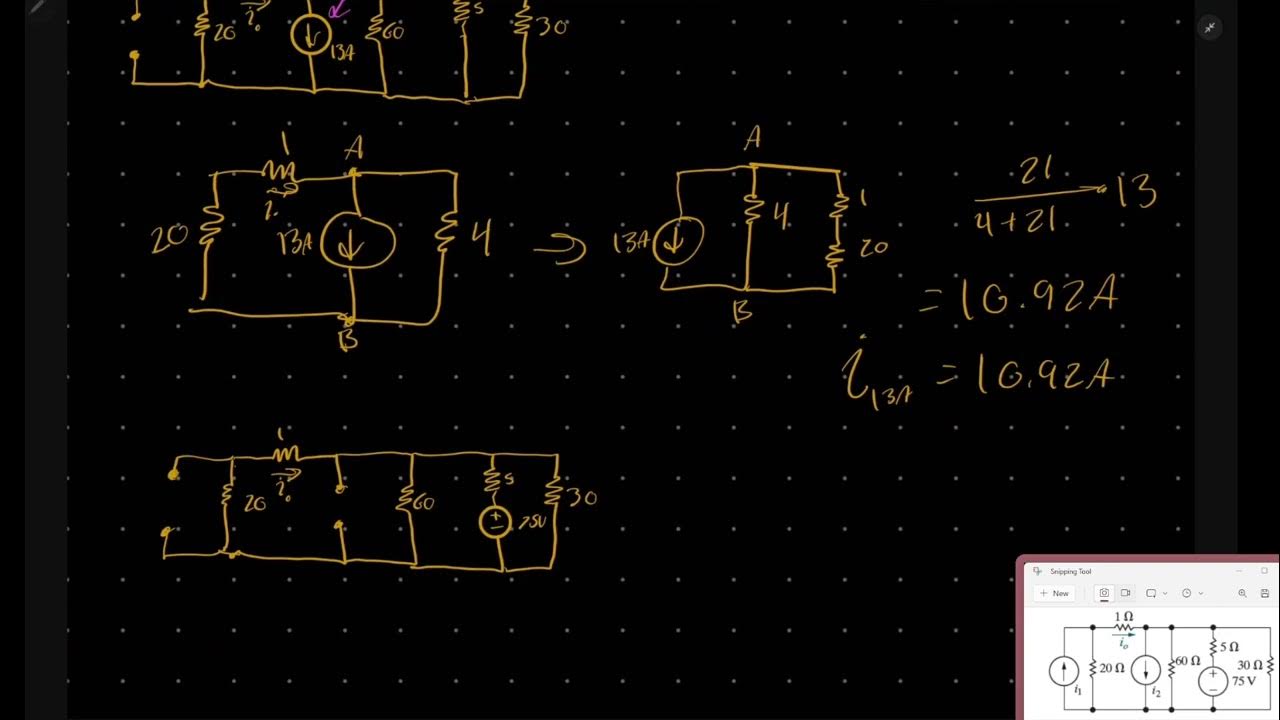 20
i₀
13A
60
5
30
1
A
20
i₀
13A
4
B
A
13A
4
1
20
B
21
4+21
13
= 10.92A
i13A = 10.92A
1
i₀
20
60
5
75V
30
Snipping Tool
New
1 Ω
i₀
i₁
20 Ω
i₂
60 Ω
5 Ω
75 V
30 Ω